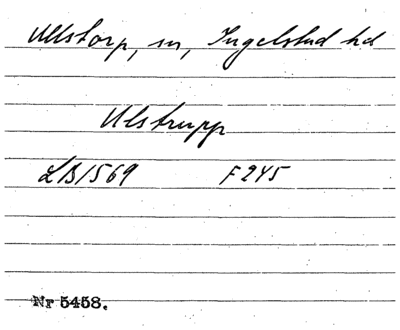 Ullstorp, sn, Ingelstad hd
Ulstrupp
LB1569 F245
Nr 5458.